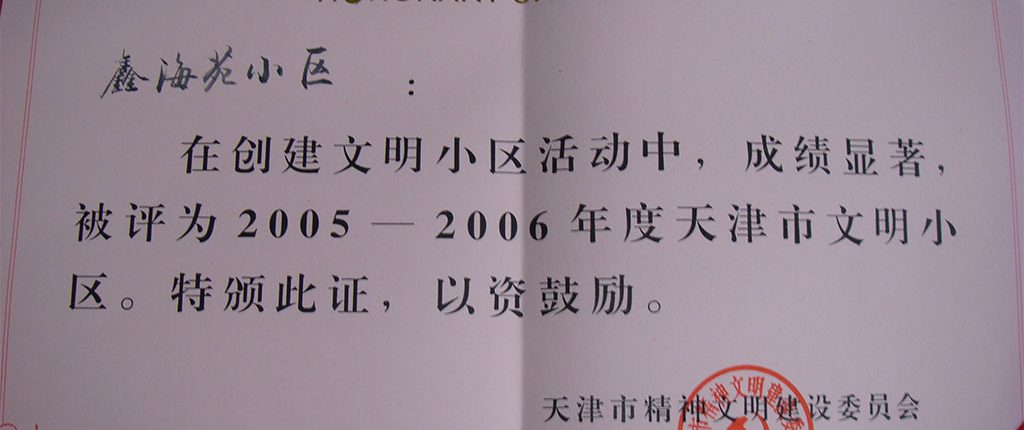 鑫海苑小区：
在创建文明小区活动中，成绩显著，
被评为2005—2006年度天津市文明小
区。特颁此证，以资鼓励。
天津市精神文明建设委员会